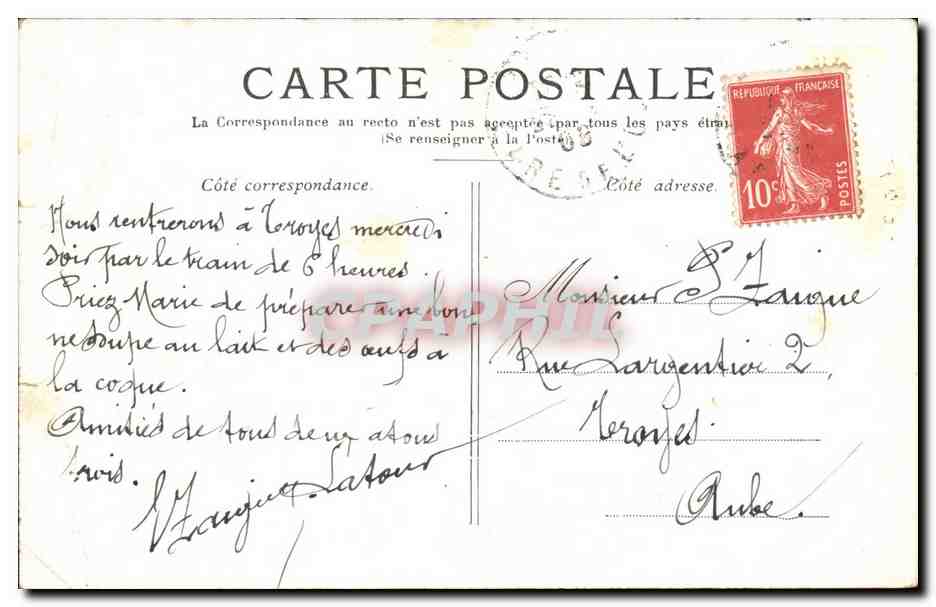 CARTE POSTALE
La Correspondance au recto n'est pas acceptée par tous les pays
(Se renseigner à la Poste)
RÉPUBLIQUE FRANÇAISE
10c
POSTES
Côté correspondance.
Nous rentrerons à Troyes mercredi
soir par le train de 6 heures.
Priez Marie de préparer une bon
ne soupe au lait et des œufs à
la coque.
Amitiés de tous deux à tous
trois.
Latour
Côté adresse.
Monsieur
Rue Largentier 2,
Troyes.
Aube.
CPAPHIL